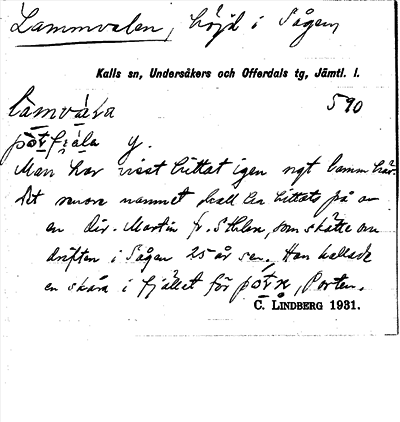 Lammvalen, höjd i Sågen
Kalls sn, Undersåkers och Offerdals tg, Jämtl. l.
lamvala 590
pǫtfjäla y.
Man har visst hittat igen ngt lamm här.
Det senare namnet skall ha hittats på av
en dir. Martin fr. Sthlm, som skötte om
driften i Sågen 25 år sen. Han kallade
en skåra i fjället för pǫtn, Porten.
C. LINDBERG 1931.